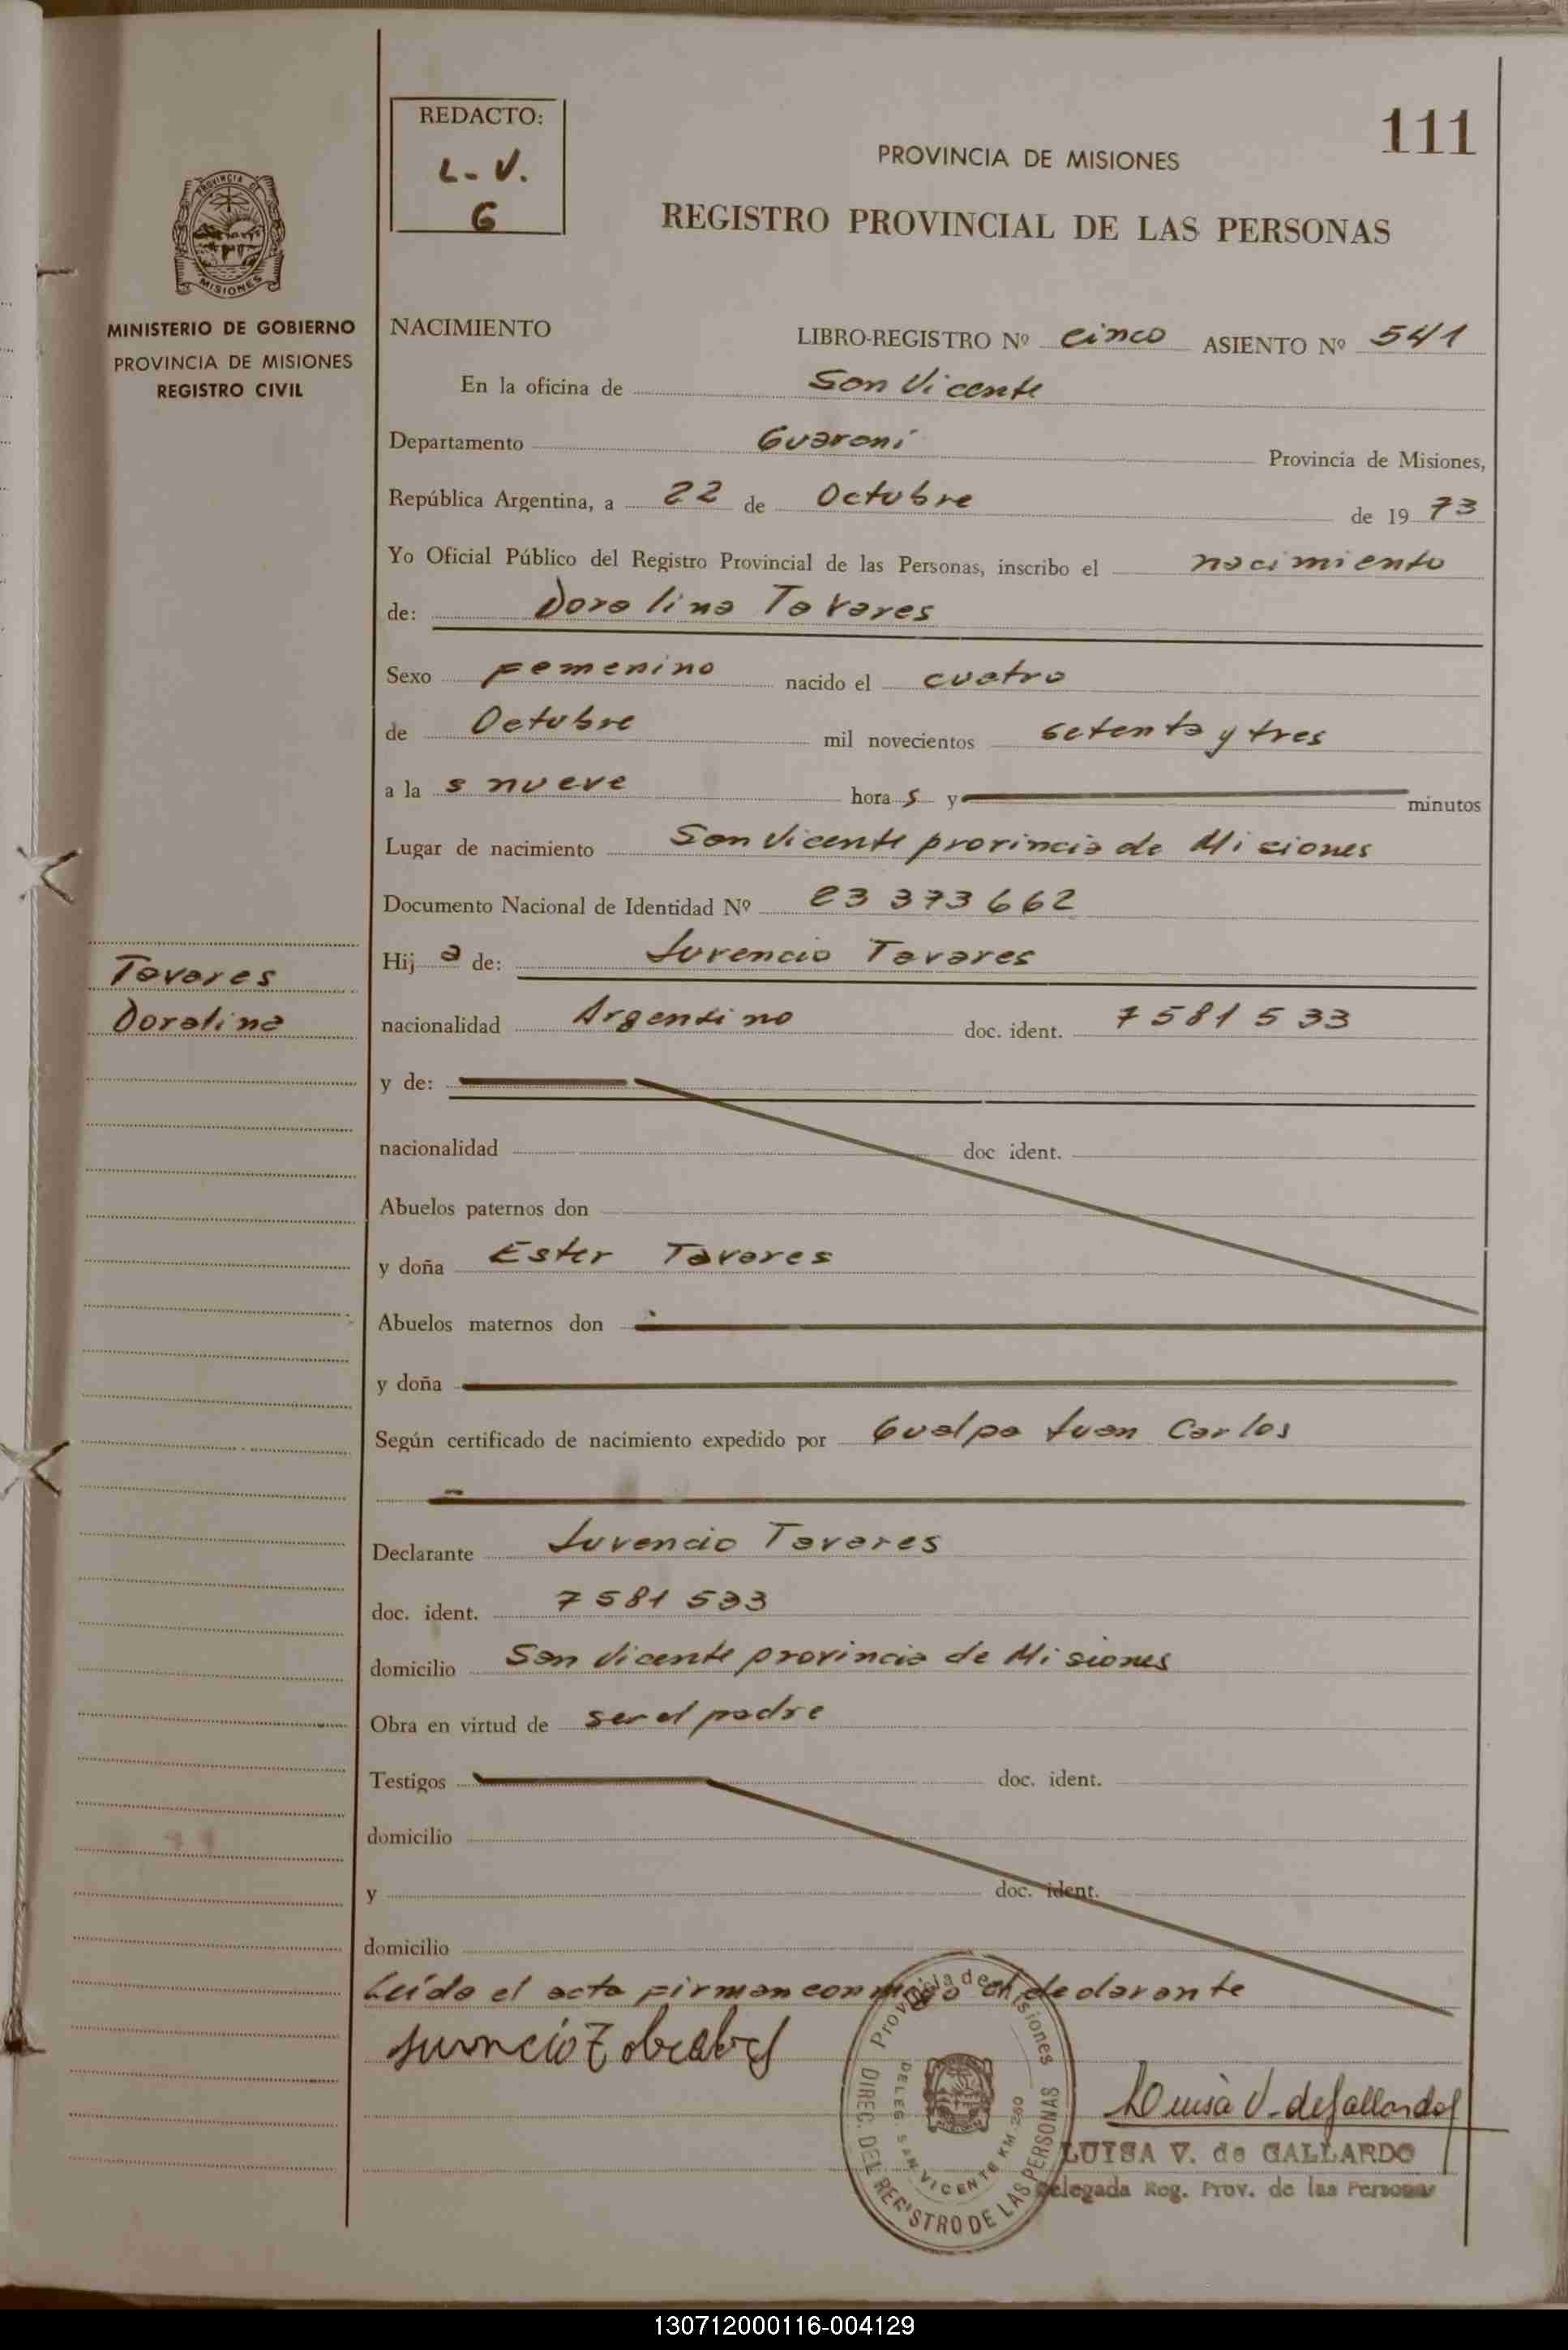 REDACTO:
L-V.
G
111
PROVINCIA DE MISIONES
REGISTRO PROVINCIAL DE LAS PERSONAS
PROVINCIA DE
MISIONES
MINISTERIO DE GOBIERNO
PROVINCIA DE MISIONES
REGISTRO CIVIL
NACIMIENTO LIBRO-REGISTRO Nº cinco ASIENTO Nº 541
En la oficina de San Vicente
Departamento Guaraní Provincia de Misiones,
República Argentina, a 22 de Octubre de 1973
Yo Oficial Público del Registro Provincial de las Personas, inscribo el nacimiento
de: Doralina Tavares
Sexo Femenino nacido el cuatro
de Octubre mil novecientos setenta y tres
a las nueve horas y minutos
Lugar de nacimiento San Vicente provincia de Misiones
Documento Nacional de Identidad Nº 23 373 662
Hija de: Juvencio Tavares
Tavares
Doralina
nacionalidad Argentino doc. ident. 7 581 533
y de:
nacionalidad doc ident.
Abuelos paternos don
y doña Ester Tavares
Abuelos maternos don
y doña
Según certificado de nacimiento expedido por Gualpa Juan Carlos
Declarante Juvencio Tavares
doc. ident. 7 581 533
domicilio San Vicente provincia de Misiones
Obra en virtud de ser el padre
Testigos doc. ident.
domicilio
y doc. ident.
domicilio
Leída el acta firman conmigo el declarante
Provincia de Misiones
DIREC. DEL REGISTRO DE LAS PERSONAS
DELEG. SAN VICENTE KM. 260
Luisa V. de Gallardo
LUISA V. de GALLARDO
Delegada Reg. Prov. de las Personas
130712000116-004129